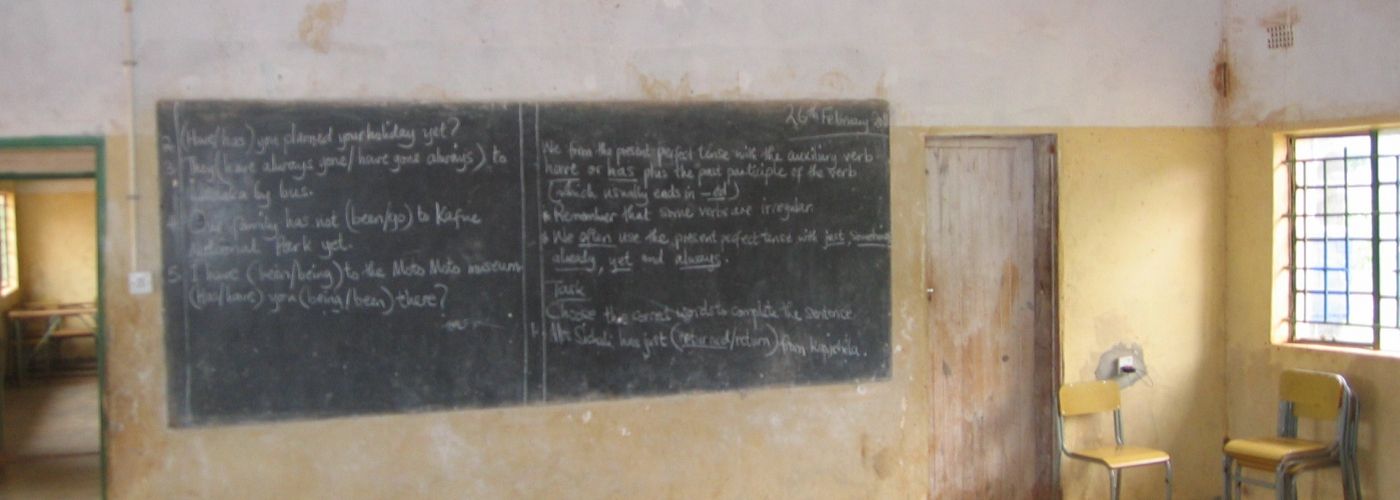 2 (Have/has) you planned your holiday yet?
3 They (have always gone/have gone always) to
Lusaka by bus.
4 Our family has not (been/go) to Kafue
National Park yet.
5. I have (been/being) to the Moto Moto museum
(Has/have) you (being/been) there?
26th February
We from the present perfect tense with the auxiliary verb
have or has plus the past participle of the verb
(which usually ends in -ed)
* Remember that some verbs are irregular.
* We often use the present perfect tense with just, sometimes
already, yet and always.
Task
Choose the correct words to complete the sentence
1. Mr has just (returned/return) from